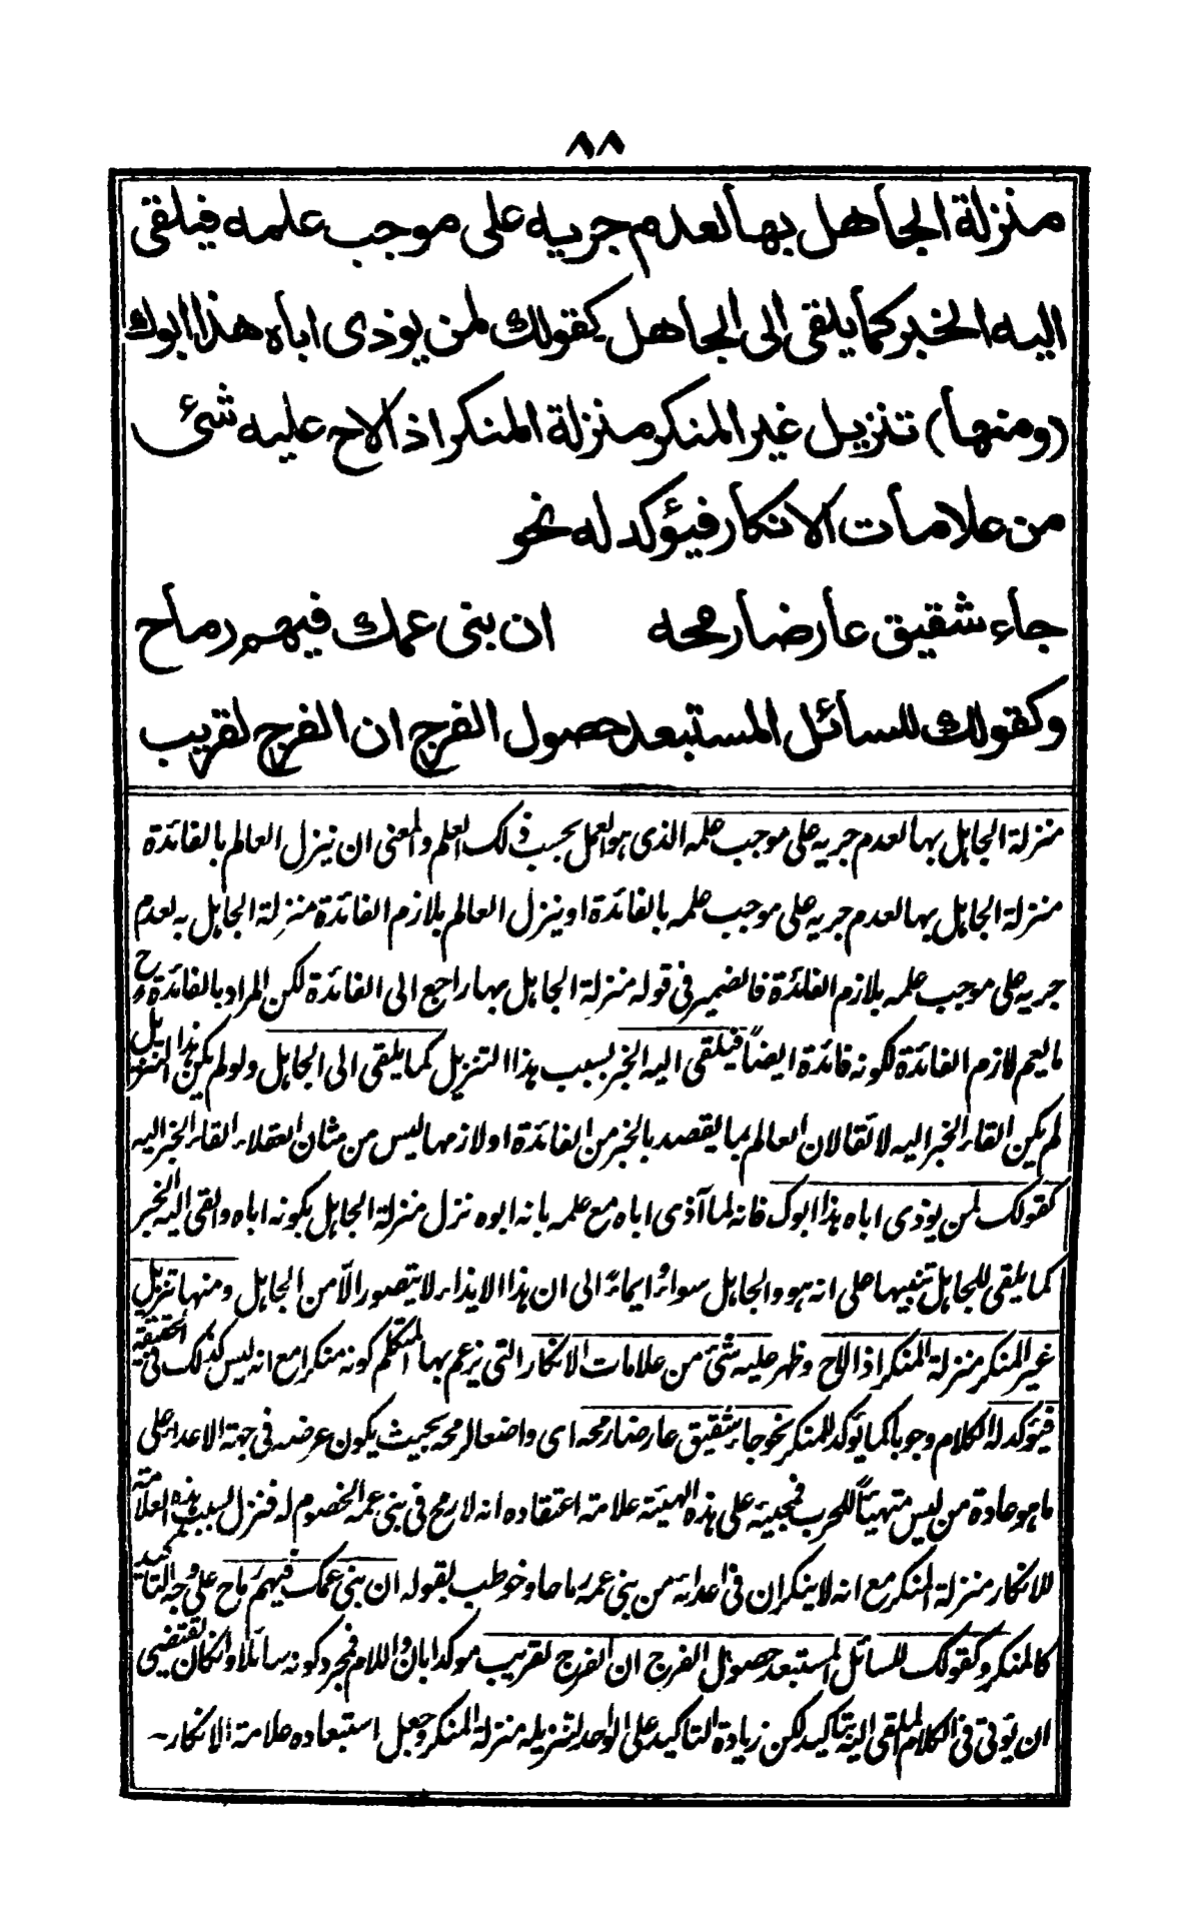 ٨٨
منزلة الجاهل بها لعدم جريه على موجب علمه فيلقى
اليه الخبر كما يلقى الى الجاهل كقولك لمن يوذى اباه هذا ابوك
(ومنها) تنزيل غير المنكر منزلة المنكر اذ الاح عليه شئ
من علامات الانكار فيؤكد له نحو
جاء شقيق عارضا رمحه ان بنى عمك فيهم رماح
وكقولك للسائل المستبعد حصول الفرج ان الفرج لقريب
منزلة الجاهل بها لعدم جريه على موجب علمه الذى هو العمل بحسب ذلك العلم والمعنى ان ينزل العالم بالفائدة
منزلة الجاهل بها لعدم جريه على موجب علمه بالفائدة او ينزل العالم بلازم الفائدة منزلة الجاهل به لعدم
جريه على موجب علمه بلازم الفائدة فالضمير فى قوله منزلة الجاهل بها راجع الى الفائدة لكن المراد بالفائدة ح
ما يعم لازم الفائدة لكونه فائدة ايضاً فيلقى اليه الخبر بسبب هذا التنزيل كما يلقى الى الجاهل ولو لم يكن هذا التنزيل
لم يكن القاء الخبر اليه لائقا لان العالم بما يقصد بالخبر من الفائدة او لازمها ليس من شان العقلاء القاء الخبر اليه
كقولك لمن يوذى اباه هذا ابوك فانه لما آذى اباه مع علمه بانه ابوه نزل منزلة الجاهل بكونه اباه والقى اليه الخبر
كما يلقى للجاهل تنبيها على انه هو والجاهل سواءٌ ايماءً الى ان هذا الايذاء لا يتصور الّا من الجاهل ومنها تنزيل
غير المنكر منزلة المنكر اذ الاح وظهر عليه شئ من علامات الانكار التى يزعم بها المتكلم كونه منكرا مع انه ليس كذلك فى الحقيقة
فيؤكد له الكلام وجوبا كما يؤكد للمنكر نحو جاء شقيق عارضا رمحه اى واضعا لرمحه بحيث يكون عرضه فى جهة الاعداء على
ما هو عادة من ليس متهيئاً للحرب فمجيئه على هذه الهيئة علامة اعتقاده انه لا رمح فى بنى عمه الخصوم له فنزل بسبب هذه العلامة
للانكار منزلة المنكر مع انه لا ينكر ان فى اعدائه من بنى عمه رماحا وخوطب بقوله ان بنى عمك فيهم رماح على وجه التاكيد
كالمنكر وكقولك للسائل المستبعد حصول الفرج ان الفرج لقريب موكدا بان واللام فمجرد كونه سائلا وان كان يقتضى
ان يوتى فى الكلام الملقى اليه بتاكيد لكن زيادة التاكيد على الواحد لتنزيله منزلة المنكر وجعل استبعاده علامة الانكار ـ